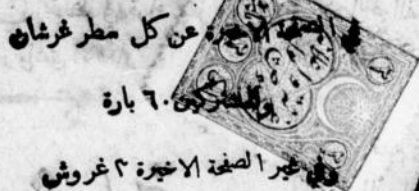 في الصفحة الاخيرة عن كل سطر غرشان
وللمشتركين ٦٠ بارة
وفي غير الصفحة الاخيرة ٣ غروش